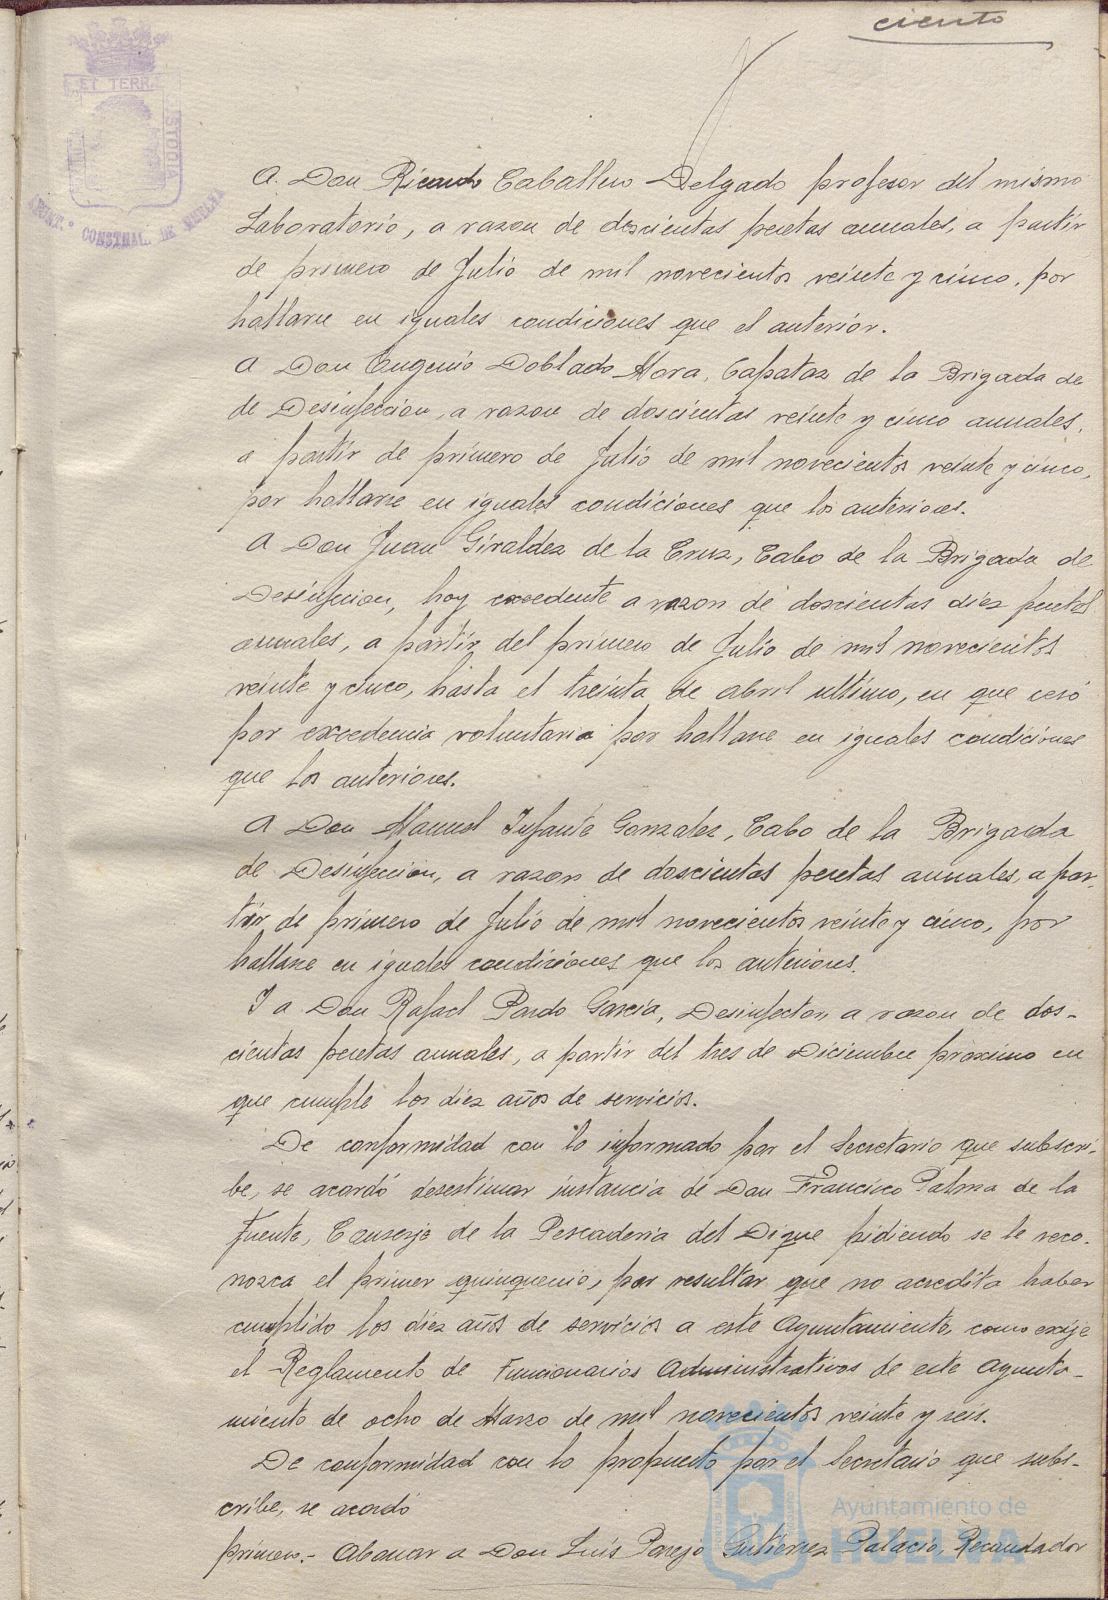 ciento
ET TERRA
STODIA
AYUNT.º CONSTNAL. DE HUELVA
A Don Ricardo Caballero Delgado profesor del mismo
Laboratorio, a razon de doscientas pesetas anuales, a partir
de primero de Julio de mil novecientos veinte y cinco, por
hallarse en iguales condiciones que el anterior.
A Don Eugenio Doblado Mora, Capataz de la Brigada de
de Desinfeccion, a razon de doscientas veinte y cinco anuales,
a partir de primero de Julio de mil novecientos veinte y cinco,
por hallarse en iguales condiciones que los anteriores.
A Don Juan Giraldez de la Cruz, Cabo de la Brigada de
Desinfeccion, hoy excedente a razon de doscientas diez pesetas
anuales, a partir del primero de Julio de mil novecientos
veinte y cinco, hasta el treinta de abril ultimo, en que cesó
por excedencia voluntaria por hallarse en iguales condiciones
que los anteriores.
A Don Manuel Infante Gonzalez, Cabo de la Brigada
de Desinfeccion, a razon de doscientas pesetas anuales, a par-
tir de primero de Julio de mil novecientos veinte y cinco, por
hallarse en iguales condiciones que los anteriores.
Y a Don Rafael Pardo Garcia, Desinfector, a razon de dos-
cientas pesetas anuales, a partir del tres de Diciembre proximo en
que cumple los diez años de servicios.
De conformidad con lo informado por el Secretario que subscri-
be, se acordó desestimar instancia de Don Francisco Palma de la
Fuente, Conserje de la Pescaderia del Dique pidiendo se le reco-
nozca el primer quinquenio, por resultar que no acredita haber
cumplido los diez años de servicios a este Ayuntamiento, como exije
el Reglamento de Funcionarios Administrativos de este Ayunta-
miento de ocho de Marzo de mil novecientos veinte y seis.
De conformidad con lo propuesto por el Secretario que subs-
cribe, se acordó
primero.- Abonar a Don Luis Parejo Gutierrez Palacio, Recaudador
Ayuntamiento de
HUELVA